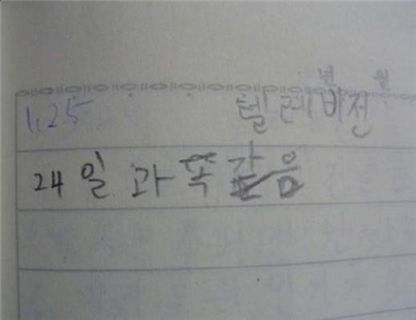 년 월
1.25 텔레비전
24일과 똑같음